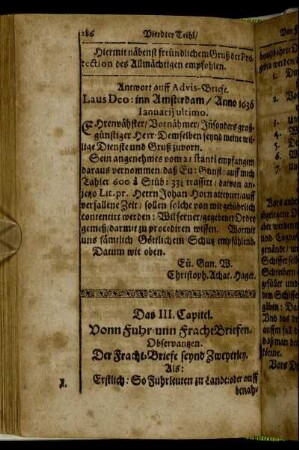 186 Vierdter Teihl/
Hiermit näbenst freündlichem Gruß der Pro-
tection des Allmächtigen empfohlen.
Antwort auff Advis-Briefe.
Laus Deo: inn Amsterdam/ Anno 1636
Ianuarij ultimo.
EHrenwähster/ Vornähmer/ Jnsonders groß-
günstiger Herr. Demselben seynd meine wil-
lige Dienste und Gruß zuvorn.
Sein angenehmes vom 21 stantè empfangen
daraus vernommen daß Eu: Gunst/ auff mich
Tahler 600 à Stüb: 33½ trassirt: darvon an-
jezo Lit.pr. Herrn Johan Horn
verfallene Zeit/ sollen solche von mir gebührlich
contentirt werden: Wil ferner/gegebener Ordre
gemeß/darmit zu procediren wissen. Wormit
uns sämtlich Göttlichem Schuz empfühlend
Datum wie oben.
Eü. Gun. W.
Christoph. Achat. Hager.
Das III. Capitel.
Vonn Fuhr-unn Fracht Briefen.
Observantzen.
Der Fracht-Briefe seynd Zweyerley.
Als:
1. Erstlich: So Fuhrleuten zu Lande: oder auff
benah-